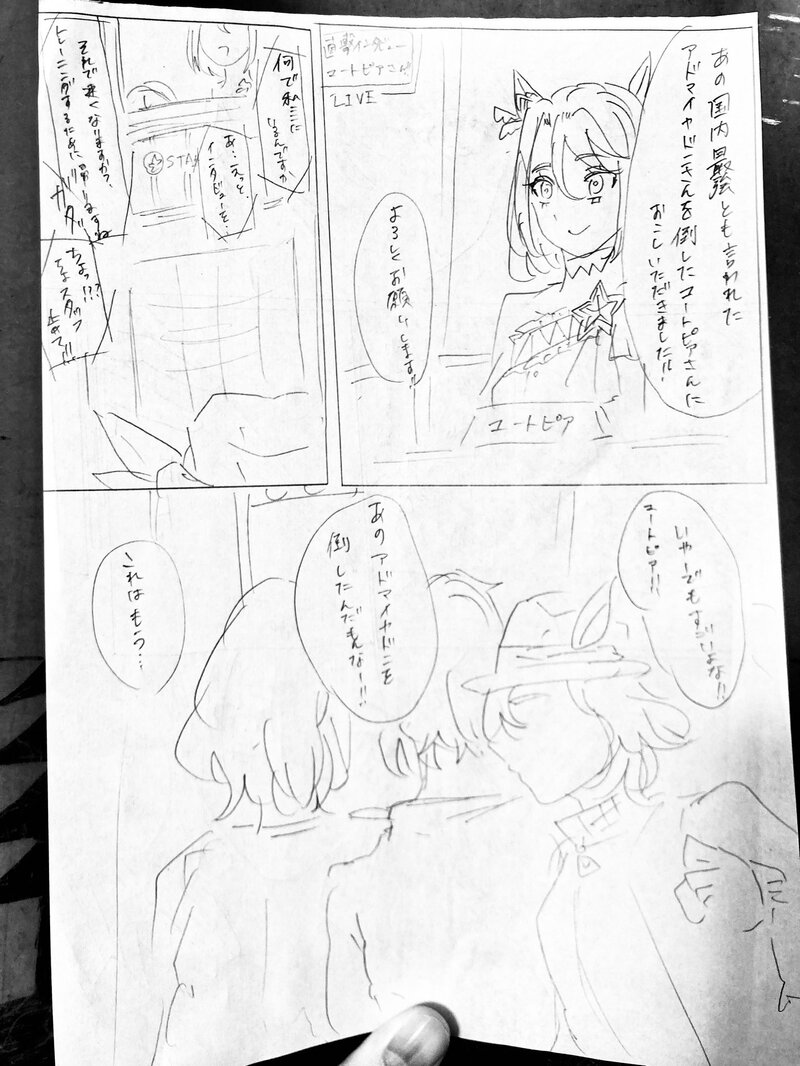 あの国内最強とも言われた
アドマイヤドンさんを倒したユートピアさんに
おこしいただきました!!
直撃インタビュー
ユートピアさん
LIVE
よろしくお願いします!!
ユートピア
何で私に
なるんですか
あ…えっと、
インタビューを…
STA
それで速くなりますか?
トレーニングするために帰りますね
ガタ
ちょっ!??
ちょスタッフ
止めて!!
いやーでもすごいよな!!
ユートピア!!
あのアドマイヤドンを
倒したんだもんなー!!
これはもう…